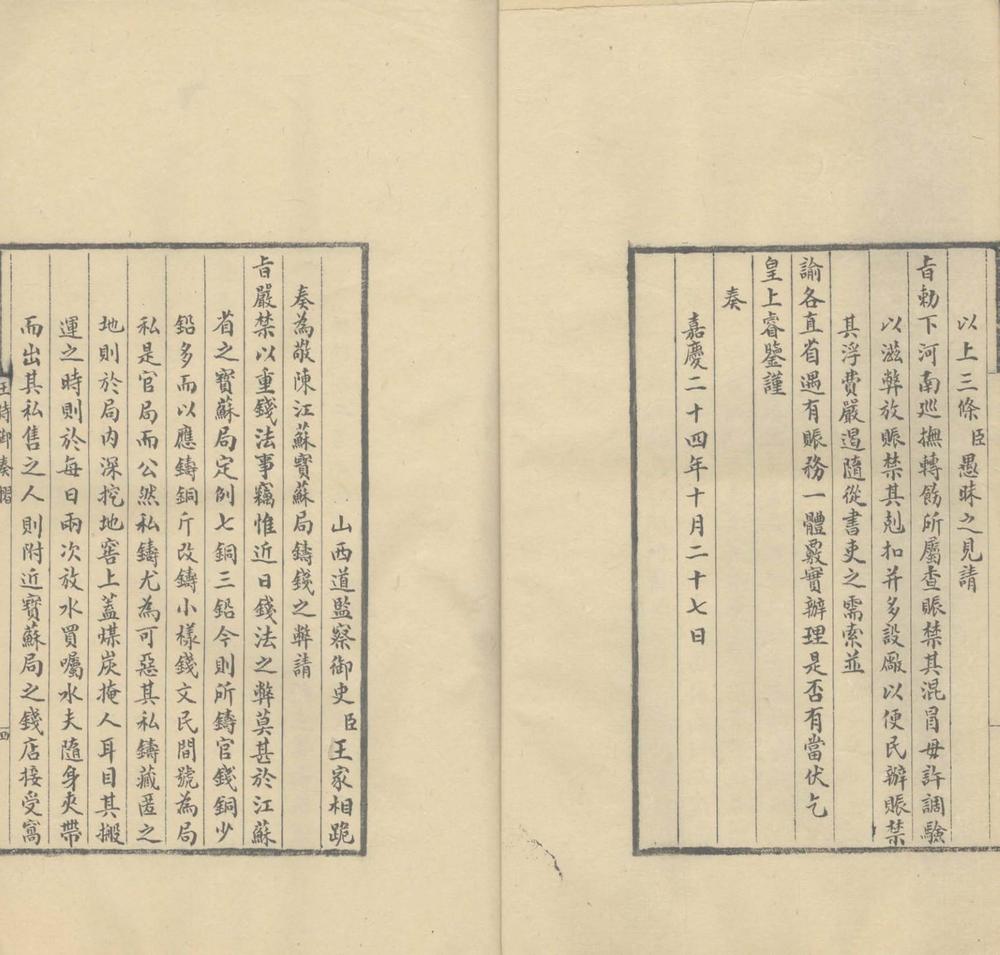 以上三條臣愚昧之見請
旨勅下河南巡撫轉飭所屬查賑禁其混冒毋許調驗
以滋弊放賑禁其剋扣并多設廠以便民辦賑禁
其浮費嚴遏隨從書吏之需索並
諭各直省遇有賑務一體覈實辦理是否有當伏乞
皇上睿鑒謹
奏
嘉慶二十四年十月二十七日
山西道監察御史臣王家相跪
奏為敬陳江蘇寶蘇局鑄錢之弊請
旨嚴禁以重錢法事竊惟近日錢法之弊莫甚於江蘇
省之寶蘇局定例七銅三鉛今則所鑄官錢銅少
鉛多而以應鑄銅斤改鑄小樣錢文民間號為局
私是官局而公然私鑄尤為可惡其私鑄藏匿之
地則於局內深挖地窖上蓋煤炭掩人耳目其搬
運之時則於每日兩次放水買囑水夫隨身夾帶
而出其私售之人則附近寶蘇局之錢店接受窩
王侍御奏摺
四